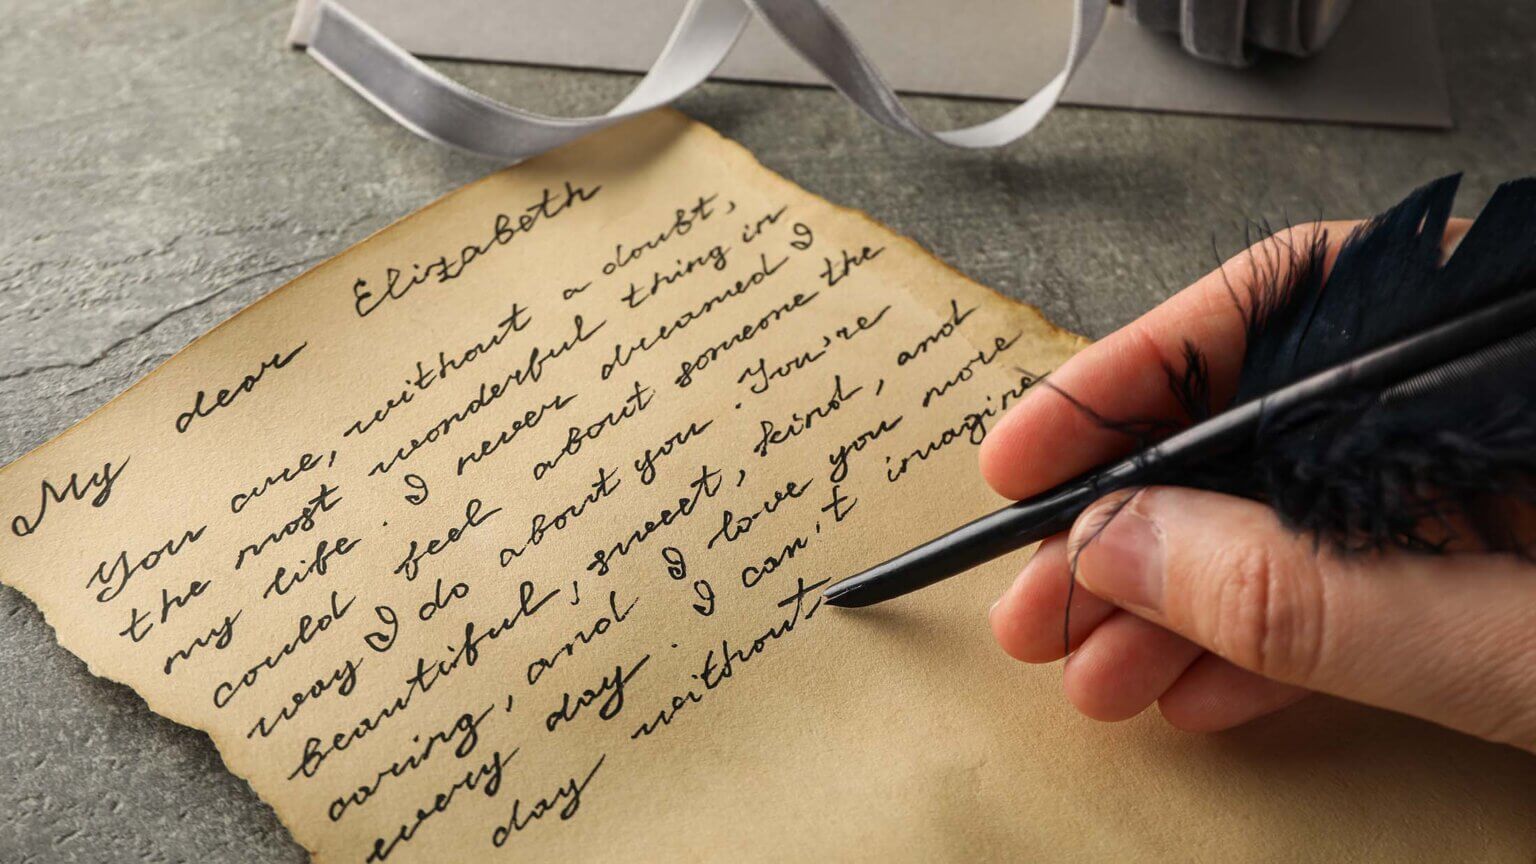 My dear Elizabeth
You are, without a doubt,
the most wonderful thing in
my life. I never dreamed I
could feel about someone the
way I do about you. You're
beautiful, sweet, kind, and
caring, and I love you more
every day. I can't imagine
day without